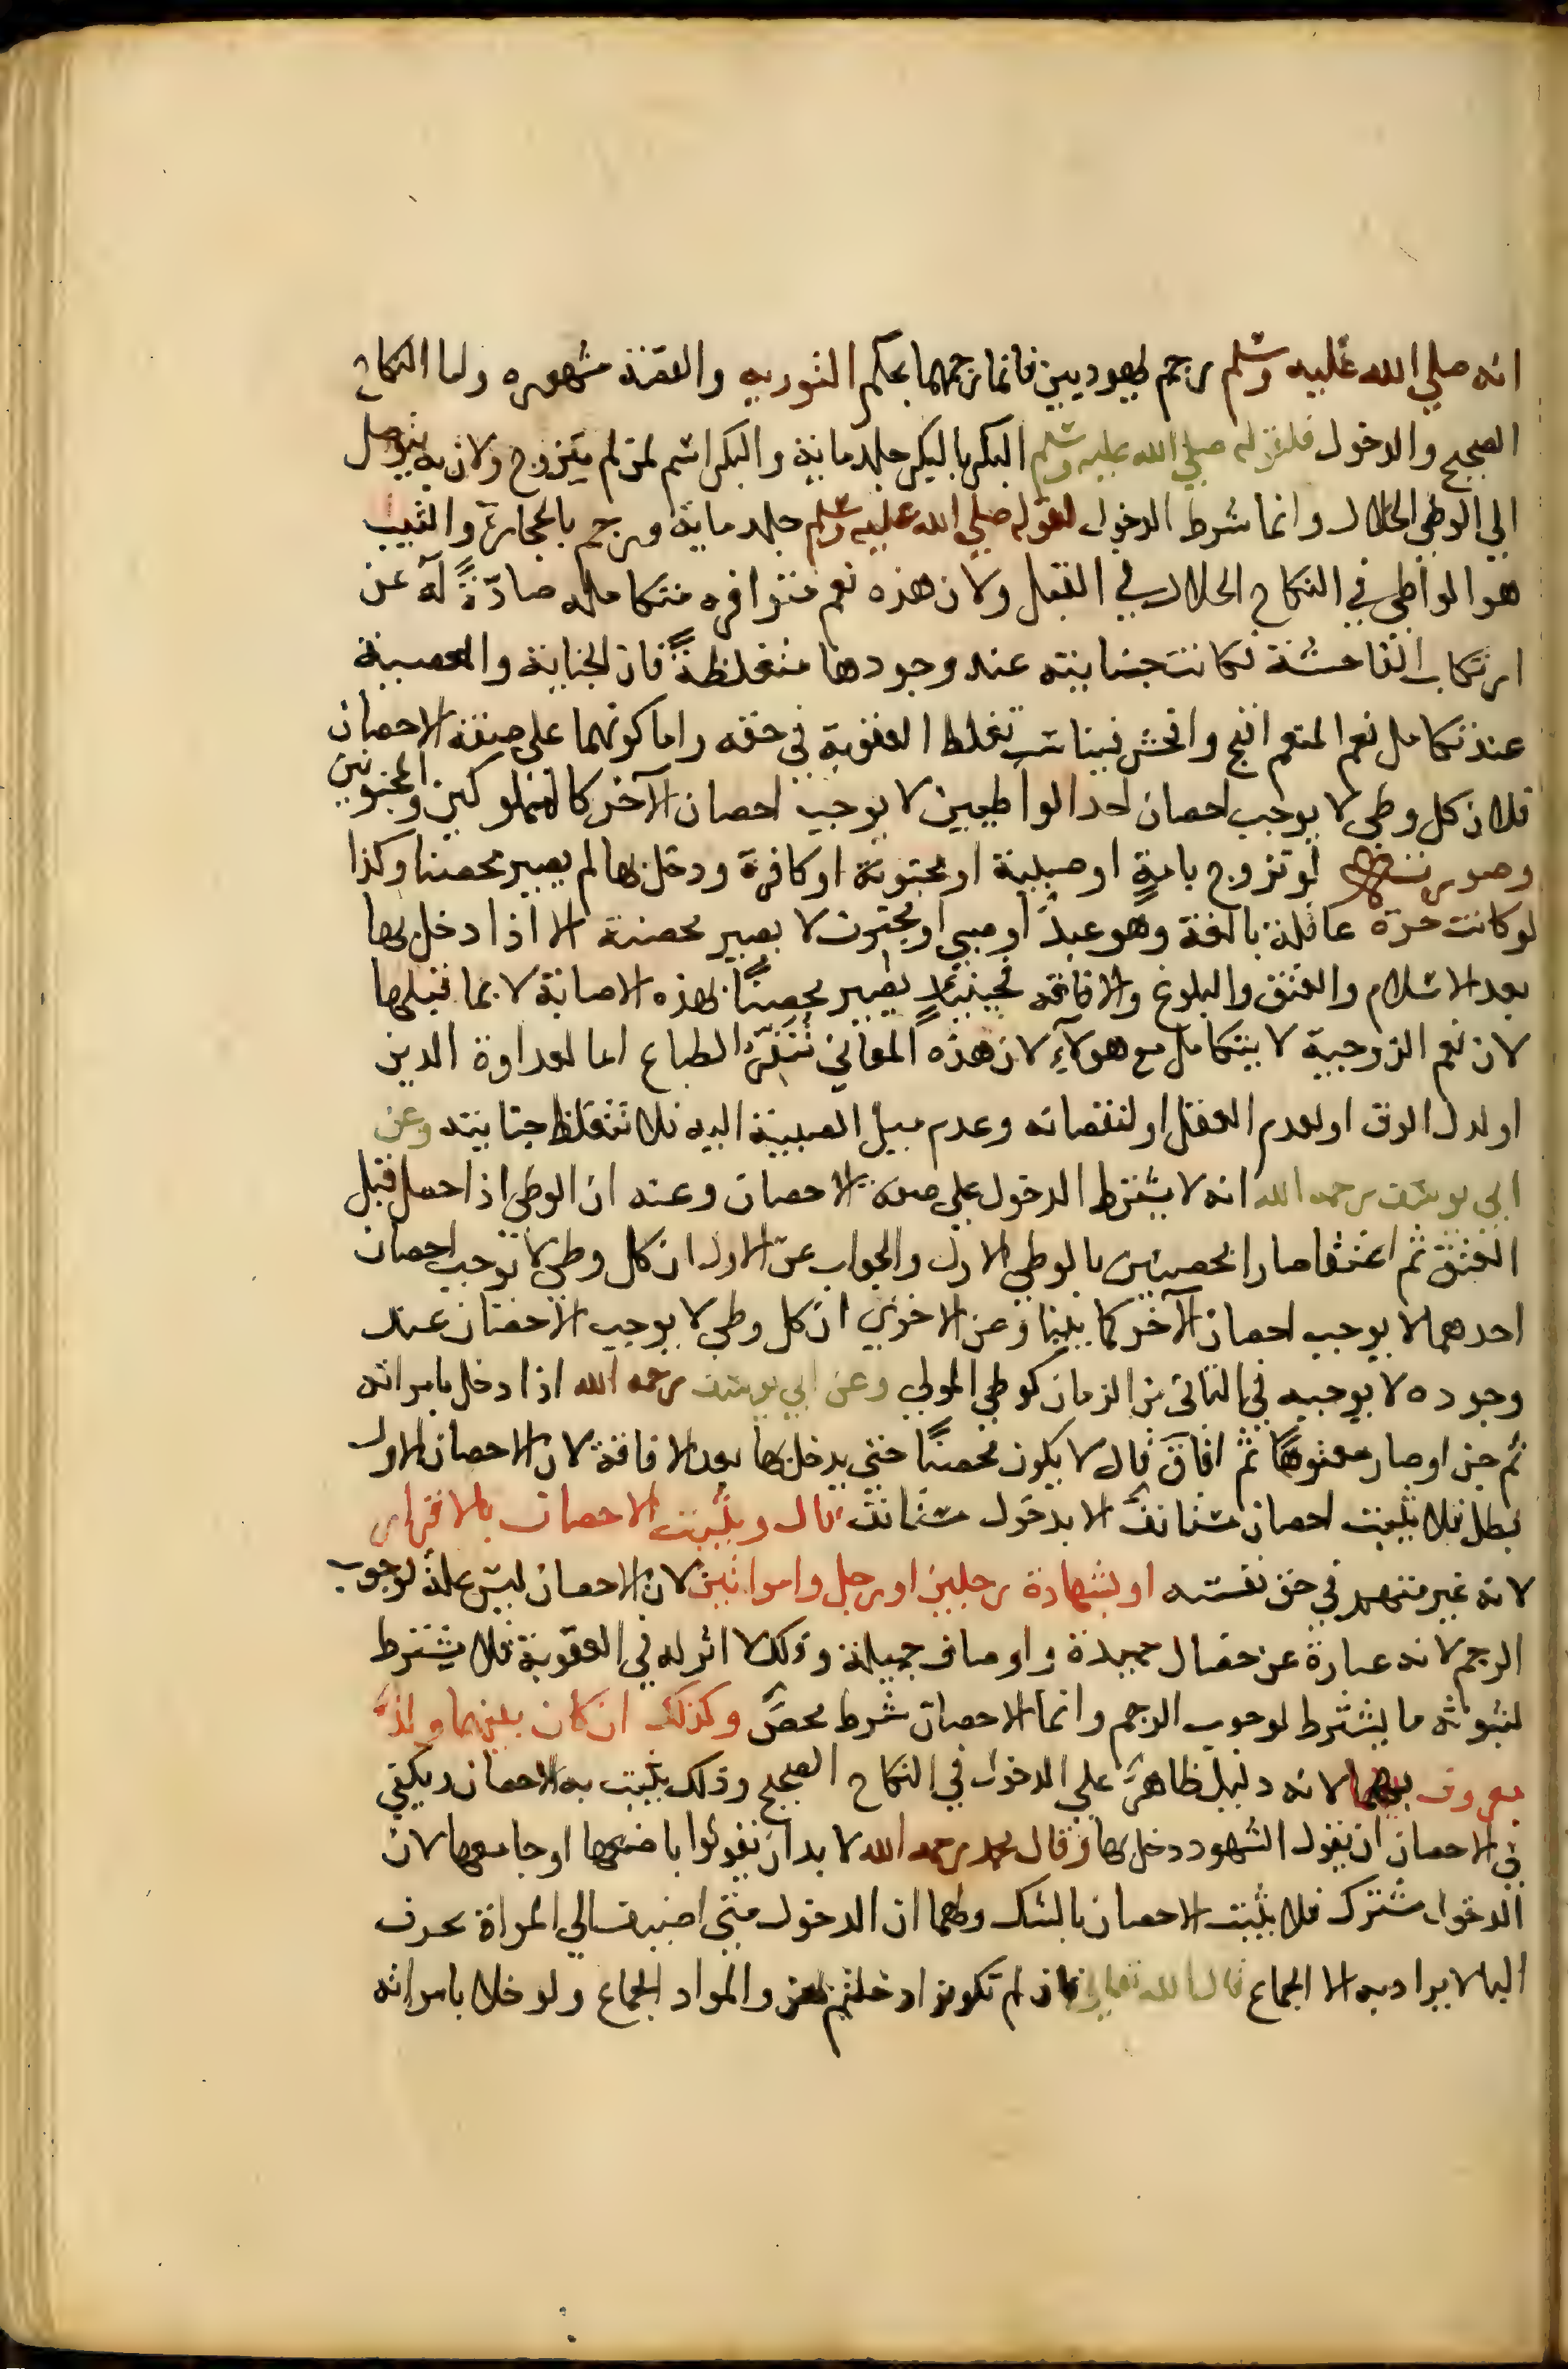 انه صلي الله عليه وسلم رجم يهوديين فانما رجمهما بحكم التوريه والقصة مشهوره واما النكاح
الصحيح والدخول فلقوله صلي الله عليه وسلم البكر بالبكر جلد ماية والبكر اسم لمن لم يتزوج ولان به يتوصل
الي الوطي الحلال وانما شرط الدخول لقوله صلي الله عليه وسلم جلد ماية ورجم بالحجارة والثيب
هو الواطي في النكاح الحلال في القبل ولان هذه نعم متوافره متكامله صادّةً له عن
ارتكاب الفاحشة فكانت جنايته عند وجودها متغلظةً فان الجناية والمعصية
عند تكامل نعم المنعم اقبح وافحش فيناسب تغلظ العقوبة في حقه واما كونهما علي صفة الاحصان
فلان كل وطي لا يوجب احصان احد الواطيين لا يوجب احصان الآخر كالمملوكين والمجنونين
وصورته لو تزوج بامةٍ او صبية او مجنونة او كافرة ودخل بها لم يصير محصنا وكذا
لو كانت حرة عاقلة بالغة وهو عبدٌ او صبي او مجنون لا يصير محصنة الا اذا دخل بها
بعد الاسلام والعتق والبلوغ والافاقه فحينيذٍ يصير محصنًا بهذه الاصابة لا بما قبلها
لان نعم الزوجية لا يتكامل مع هولآءِ لان هذه المعاني تُنَفّرُ الطباع اما لعداوة الدين
او لذل الرق او لعدم العقل او لنقصانه وعدم ميل الصبية اليه فلا تتغلظ جنايته وعن
ابي يوسف رحمه الله انه لا يشترط الدخول علي صفة الاحصان وعنه ان الوطي اذا حصل قبل
العتق ثم اعتقا صارا محصنين بالوطي الاول والجواب عن الاول ان كل وطي لا توجب احصان
احدهما لا يوجب احصان الآخر كما بينا وعن الاخري ان كل وطي لا يوجب الاحصان عند
وجوده لا يوجبه في الثاني من الزمان كوطي المولي وعن ابي يوسف رحمه الله اذا دخل بامراته
ثم جن او صار معتوهًا ثم افاق قال لا يكون محصنًا حتي يدخل بها بعد الافاقة لان الاحصان الاول
بطل فلا يثبت احصان مستانف الا بدخول مستانف قال ويثبت الاحصان بالاقرار
لانه غير متهم في حق نفسه او بشهادة رجلين او رجل وامراتين لان الاحصان ليس علة لوجوب
الرجم لانه عبارة عن خصال حميدة واوصاف جميلة وذلك لا اثر له في العقوبة فلا يشترط
لثبوته ما يشترط لوجوب الرجم وانما الاحصان شرط محض وكذلك ان كان بينهما ولدٌ
معروف لانه دليل ظاهر علي الدخول في النكاح الصحيح وذلك يثبت به الاحصان ويكفي
في الاحصان ان يقول الشهود دخل بها وقال محمد رحمه الله لا بد ان يقولوا باضعها او جامعها لان
الدخول مشترك فلا يثبت الاحصان بالشك ولهما ان الدخول متي اضيف الي المراة بحرف
البا لا يراد به الا الجماع قال الله تعالي فان لم تكونوا دخلتم بهن والمراد الجماع ولو خلا بامراته